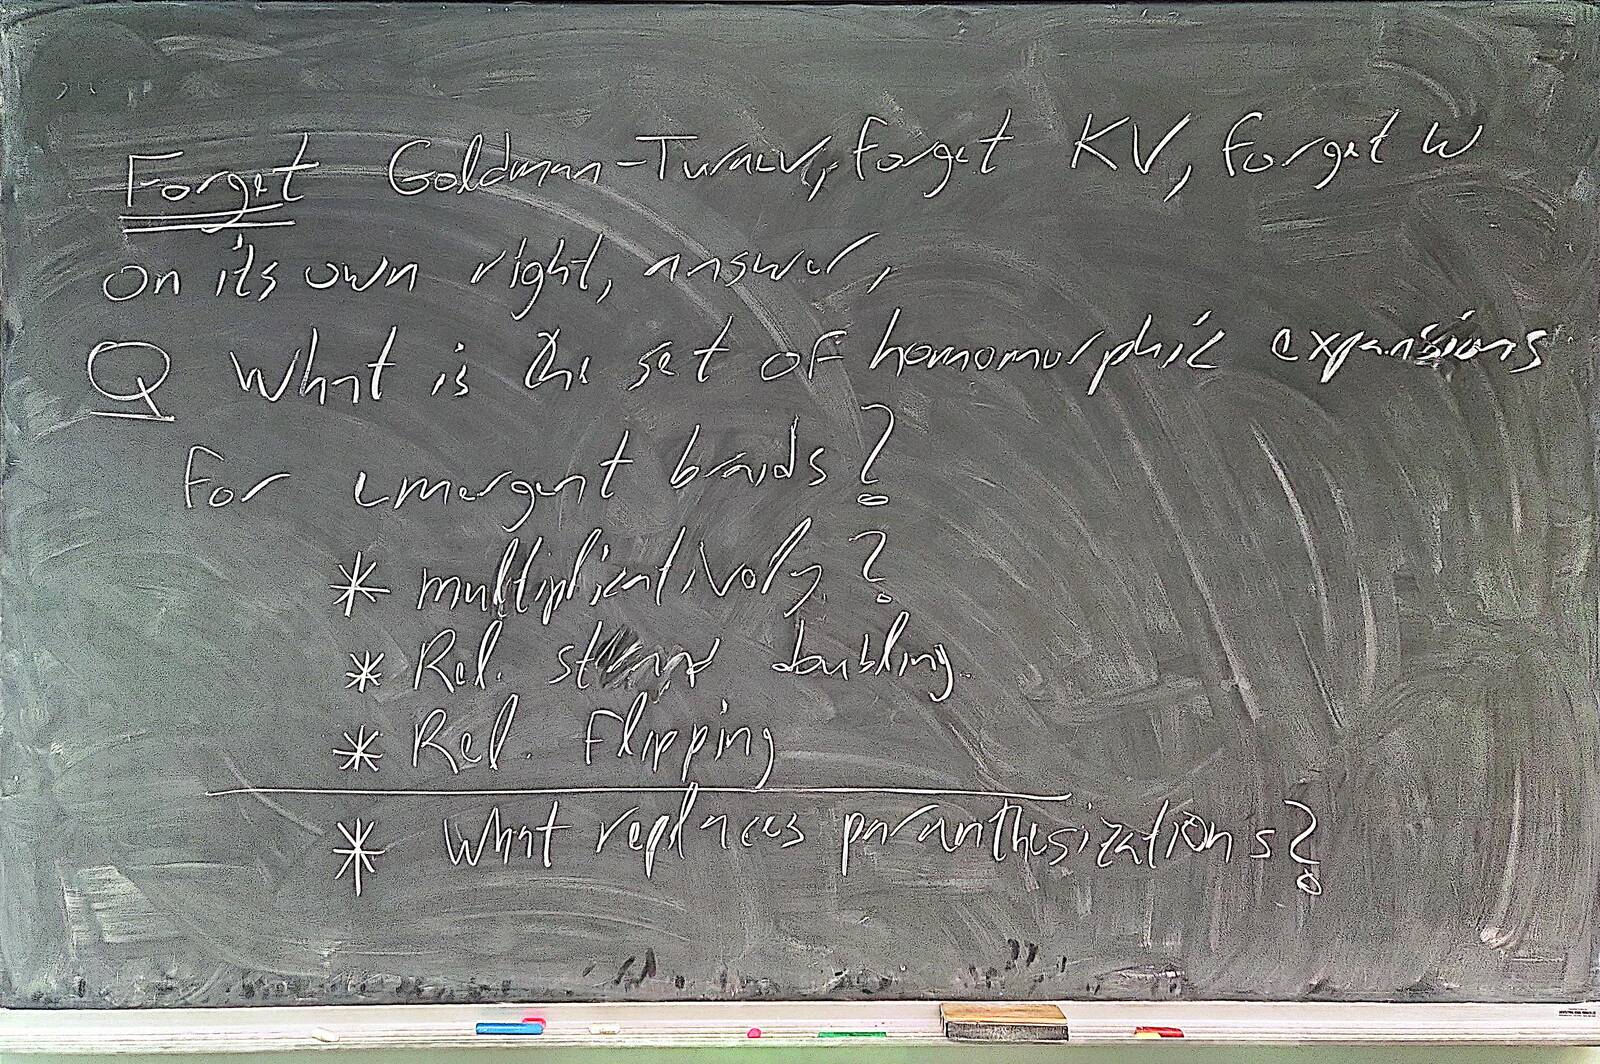 Forget Goldman-Turaev, forget KV, forget w
on its own right, answer,
Q What is the set of homomorphic expansions
for emergent braids?
* multiplicatively?
* Rel. strand doubling.
* Rel. flipping
* What replaces paranthesizations?